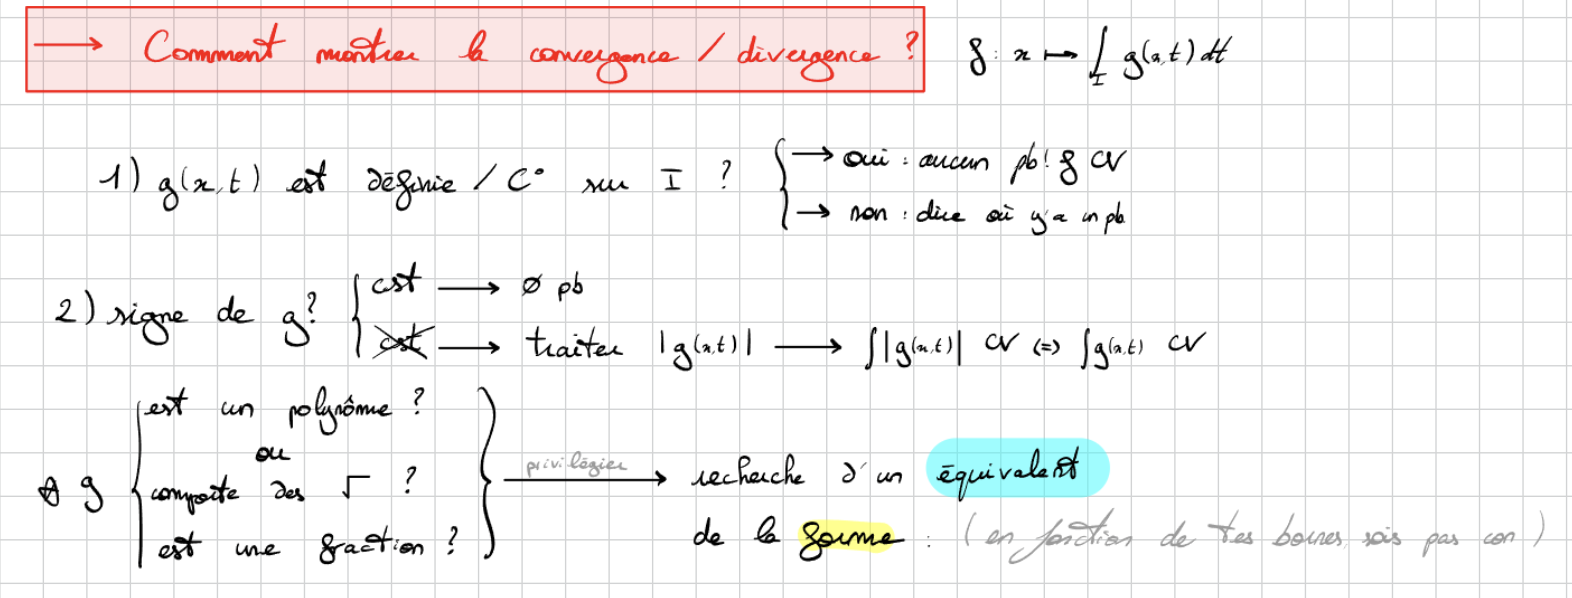 → Comment montrer la convergence / divergence ? f : x ↦ ∫_I g(x,t) dt
1) g(x,t) est définie / C° sur I ? { → oui : aucun pb! f CV
→ non : dire où y'a un pb
2) signe de g? { cst → ∅ pb
cst → traiter |g(x,t)| → ∫|g(x,t)| CV (=) ∫g(x,t) CV
g { est un polynôme ?
ou
comporte des √ ?
est une fraction ? }
privilégier → recherche d'un équivalent
de la forme : (en fonction de tes bornes, sois pas con)